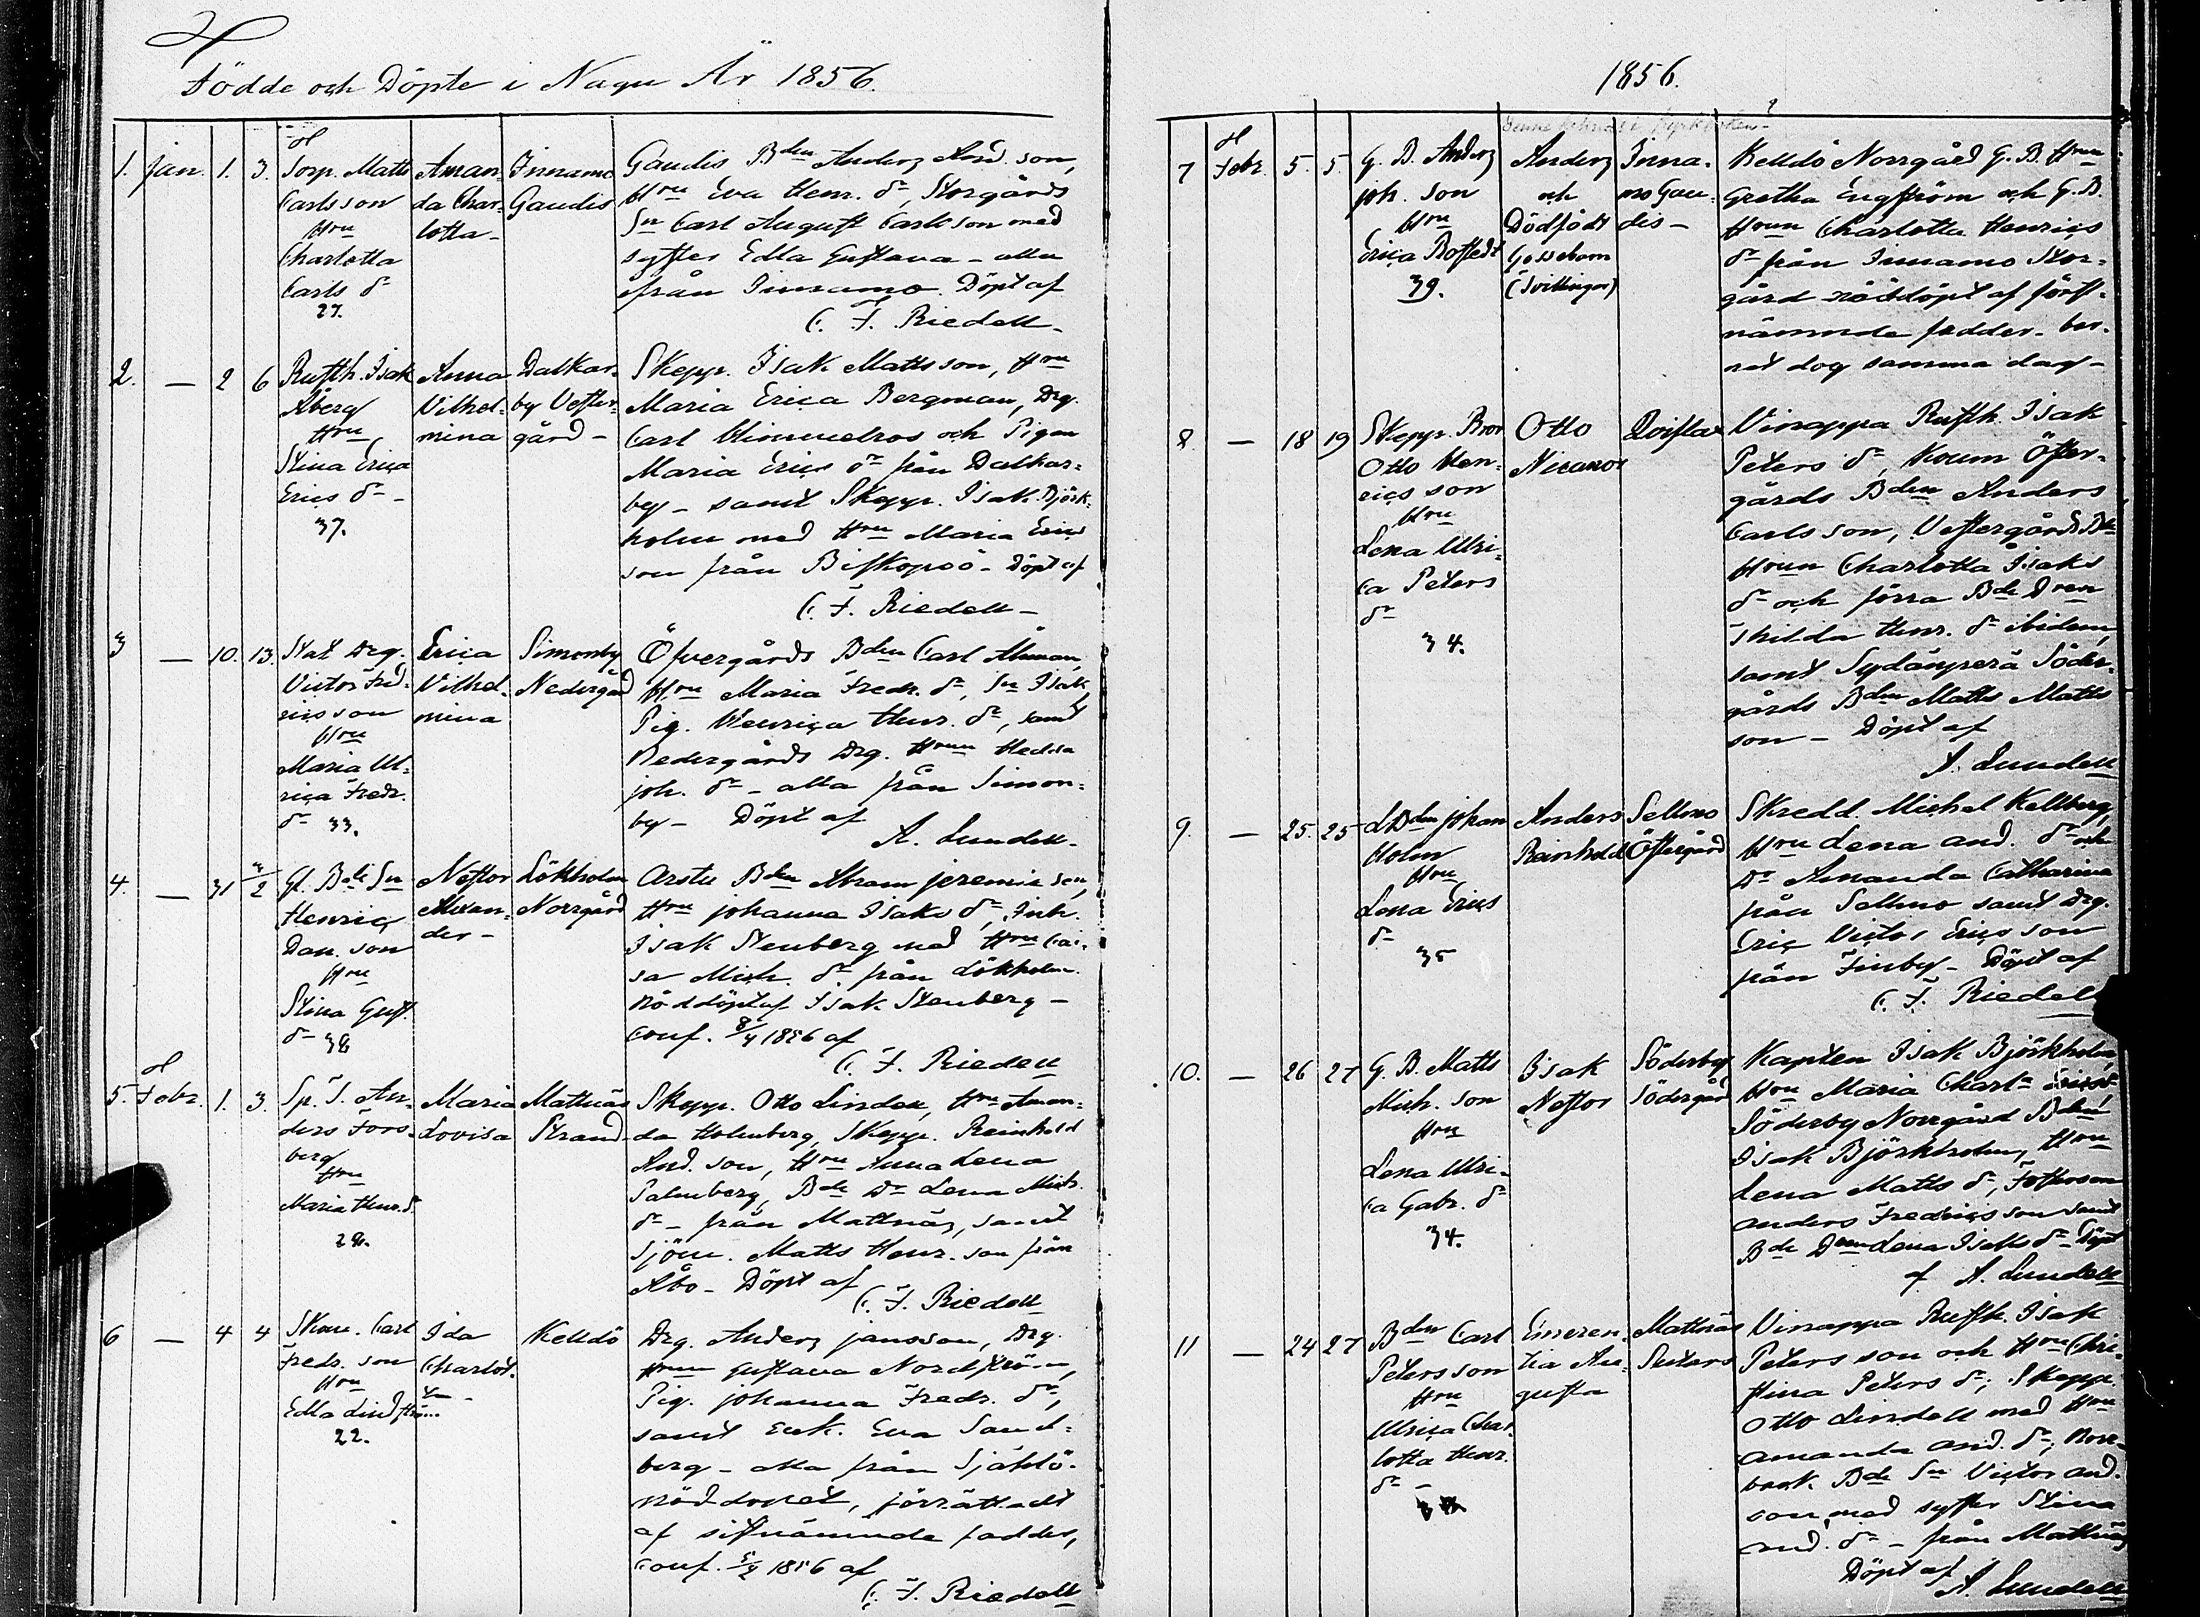 Födde och Döpte i Nagu År 1856.
1. jan. 1. 3.
Sorp. Matts
Carlsson
Hru
Charlotta
Carls dr
27.
Aman-
da Char-
lotta-
Innamo
Gaudis
Gaudis Bden Anders And. son,
Hru Eva Henr. dr, Storgårds
Sn Carl August Carlsson med
syster Edla Gustava - alla
ifrån Innamo. Döpt af
C. F. Riedell-
2. - 2 6
Rusth. Isak
Åberg
Hru
Stina Erica
Erics dr -
37.
Anna
Vilhel-
mina
Dalkar-
by Vester-
gård -
Skepp. Isak Mattsson, Hru
Maria Erica Bergman, Drg.
Carl Himmelros och Pigan
Maria Erics dr från Dalkar-
by - samt Skepp. Isak Björk-
holm med Hru Maria Erics
son från Biskopsö - Döpt af
C. F. Riedell -
3 - 10. 13.
Stat Drg.
Victor Fred-
rics son
Hru
Maria Ul-
rica Fredr.
dr 33.
Erica
Vilhel-
mina
Simonby
Nedergård
Öfvergårds Bden Carl Åman,
Hru Maria Fredr. dr, Sn Isak,
Pig. Henrica Henr. dr, samt
Nedergårds Drg. Hrun Hedda
joh. dr - alla från Simon-
by - Döpt af
A. Lundell.
4. - 31 3/2
Gl. Bde Sn
Henric
Dan. son
Hru
Stina Gust.
dr 38
Nestor
Alexan-
der -
Lökholm
Norrgård
Arstu Bden Abram jeremia son,
Hru johanna Isaks dr, Inh.
Isak Stenberg med Hru Cai-
sa Mich. dr från Lökholm.
Nöddöpt af Isak Stenberg -
conf. 8/4 1856 af
C. F. Riedell
5. Febr. 1. 3.
Sp. T. An-
ders Fors-
berg
Hru
Maria Henr. d.
28.
Maria
Lovisa
Mattnäs
Strand
Skepp. Otto Lindell, Hru Aman-
da Holmberg, Skepp. Reinhold
And. son, Hru Anna Lena
Palmberg, Bde Dr Lena Mich.
dr - från Mattnäs, samt
Sjöm. Matts Henr. son från
Åbo - Döpt af
C. F. Riedell
6 - 4 4
Skom. Carl
Fredr. son
Hru
Edla Lindström
22.
Ida
Charlot-
ta -
Kelldö
Drg. Anders jansson, Drg.
Hrun Gustava Nordström,
Pig. johanna Fredr. dr,
samt Enk. Eva Sand-
berg - alla från Själö.
Nöddopet, förrättadt
af sistnämnde fadder,
conf. 5/4 1856 af
C. F. Riedell
1856.
7 Febr. 5. 5.
G. B. Anders
joh. son
Hru
Erica Bostedt
39.
Anders
och
Dödfödt
Gossebarn
(Tvillingar)
Inna-
mo Gau-
dis -
Kelldö Norrgård G. B. Hrun
Gretha Engström och G. B.
Hrun Charlotta Henrics
dr från Innamo Stor-
gård nöddöpt af först-
nämnde fadder - bar-
net dog samma dag -
8 - 18 19
Skepp. Bror
Otto Hen-
rics son
Hru
Lena Ulri-
ca Peters
dr
34.
Otto
Nicanor
Qvistax
Vinappa Rusth. Isak
Peters dr, Koum Öster-
gårds Bden Anders
Carlsson, Vestergårds Bde
Hrun Charlotta Isaks
dr och förra Bde Dren
Thilda Henr. dr ibidem,
samt Sydänperä Söder-
gårds Bden Matts Matts
son - Döpt af
A. Lundell
9. - 25. 25
LBden johan
Holm
Hru
Lena Erics
dr
35
Anders
Reinhold
Sellmo
Östergård
Skredd. Michel Kellberg,
Hru Lena and. dr och
Dr Amanda Catharina
från Sellmo samt Drg.
Eric Victor Erics son
från Finby - Döpt af
C. F. Riedell
10. - 26 27
G. B. Matts
Mich. son
Hru
Lena Ulri-
ca Gabr. dr
34.
Isak
Nestor
Söderby
Södergård
Kapten Isak Björkholm,
Hru Maria Charl.
Söderby Norrgård Bden
Isak Björkholm, Hru
Lena Matts dr, Fosterson
Anders Fredrics son samt
Bde Dren Lena Isaks dr - Döpt
af A. Lundell
11 - 24 27
Bden Carl
Petersson
Hru
Ulrica Char-
lotta Henr.
dr -
Emeren-
tia Au-
gusta
Mattnäs
Sutars
Vinappa Rusth. Isak
Petersson och Hru Chri-
stina Peters dr; Skepp.
Otto Lindell med Hru
Amanda And. dr; Norr-
back. Bde Sn Victor and.
son med syster Stina
and. dr - från Mattnäs
Döpt af
A. Lundell